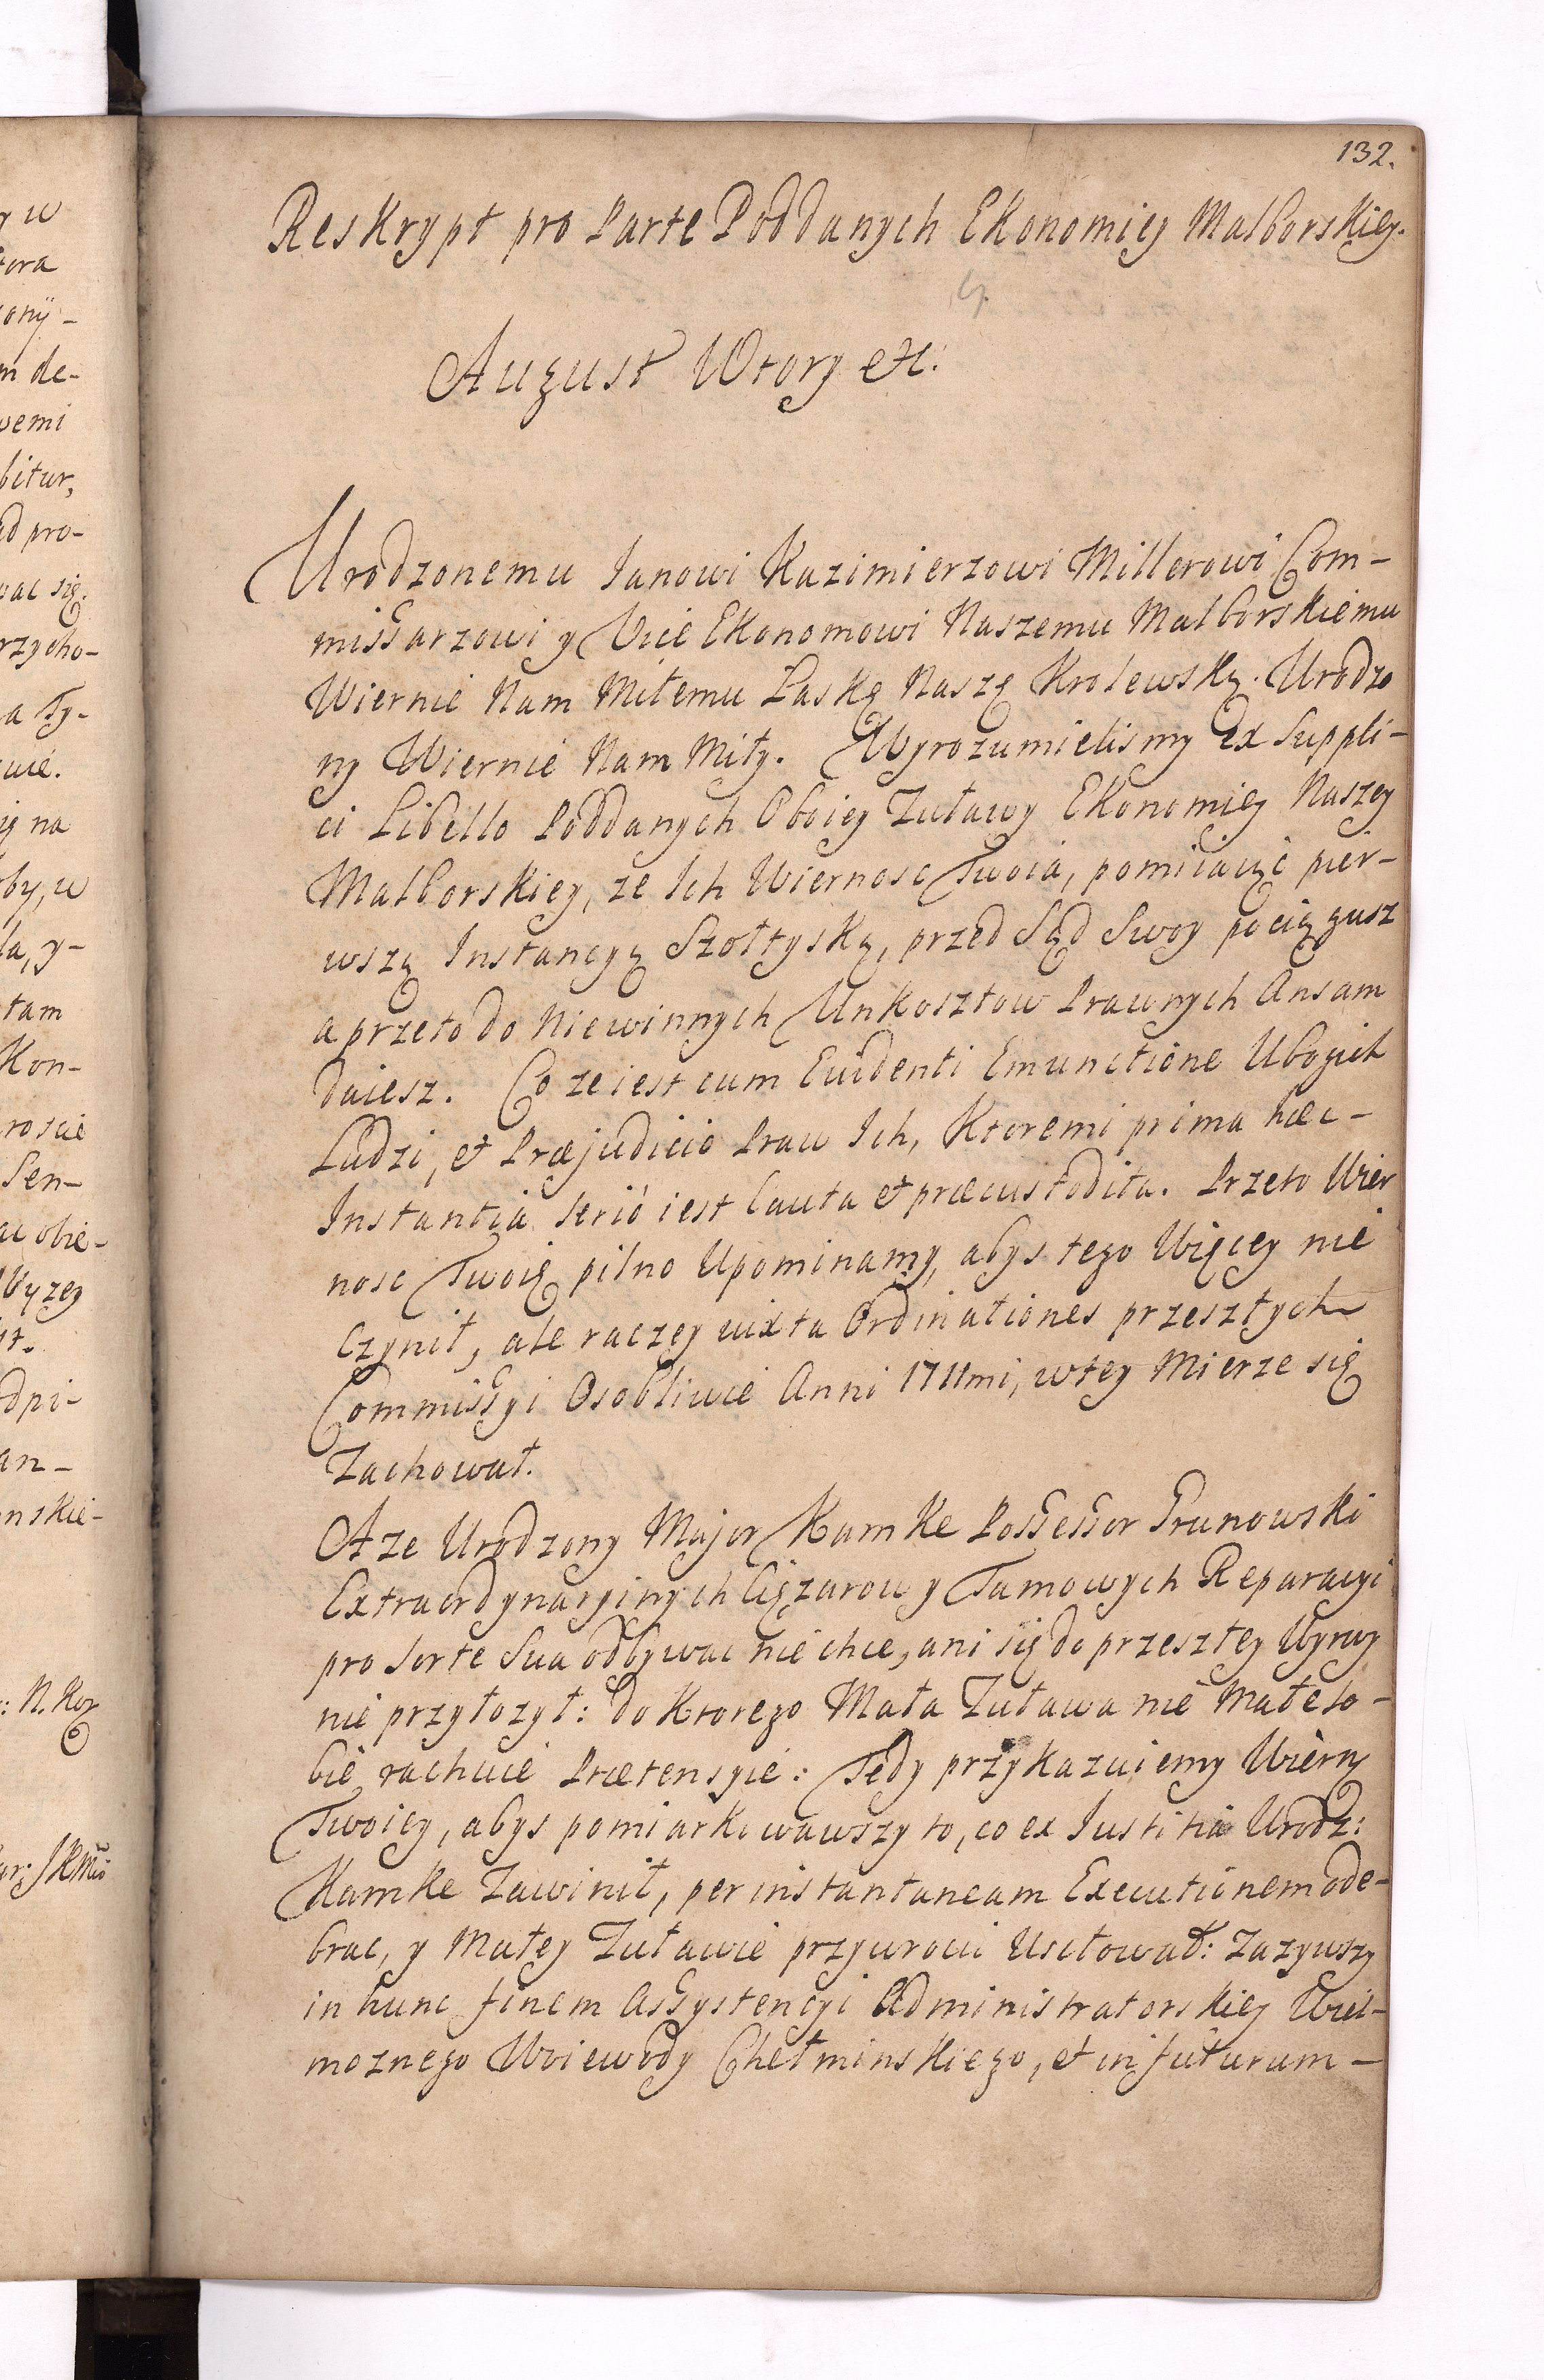 132.
Reskrypt pro Parte Poddanych Ekonomiey Malborskiey.
August Wtory etc:
Urodzonemu Janowi Kazimierzowi Millerowi Com-
missarzowi y Vice Ekonomowi Naszemu Malborskiemu
Wiernie Nam Miłemu Łaskę Naszę Krolewską. Urodzo
ny Wiernie Nam Miły. Wyrozumielismy ex Suppli-
ci Libello Poddanych Oboiey Zuławy Ekonomiey Naszey
Malborskiey, ze Ich Wiernosc Twoia, pomiiaiąc pier-
wszą Instancyą Szołtyską, przed Sąd Swoy pociągasz
a przeto do Niewinnych Unkosztow Prawnych Ansam
daiesz. Co ze iest cum Evidenti Emunctione Ubogich
Ludzi, et Præjudicio Praw Ich, Ktoremi prima hæc-
Instantia serio iest Cauta et præcustodita. Przeto Wier
nosc Twoię pilno Upominamy, abys tego Więcey nie
Czynił, ale raczey iuxta Ordinationes przeszłych
Commissyi Osobliwie Anni 1711mi, w tey Mierze się
Zachował.
A ze Urodzony Major Kamke Possessor Grunowski
Extraordynaryinych Ciężarow y Tamowych Reparacyi
pro Sorte Sua odbywac nie chce, ani się do przeszłey Wyrwy
nie przyłozył: do Ktorego Mała Zuława nie Małe so-
bie rachuie Prætensyie: Tedy przykazuiemy Wiern
Twoiey, abys pomiarkowawszy to, co ex Iustitia Urodz:
Kamke Zawinił, per instantaneam Executionem ode-
brac, y Małey Zuławie przywrocic Usiłował: Zazywszy
in hunc finem Assystencyi Administratorskiey Wiel-
moznego Woiewody Chełminskiego, et in futurum-